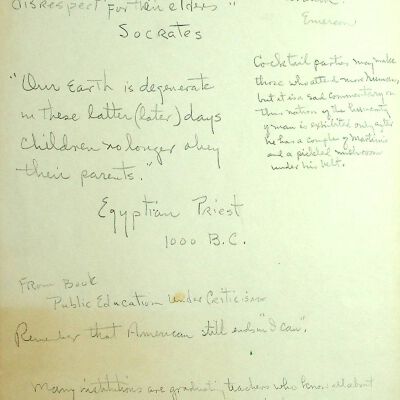 disrespect for their elders"
Socrates
Emerson
"Our Earth is degenerate
in these latter (later) days
Children no longer obey
their parents."
Egyptian Priest
1000 B.C.
Cocktail parties may make
those who attend more human,
but it is a sad commentary on
this nation if the humanity
of man is exhibited only after
he has a couple of Martinis
and a pickled mushroom
under his belt.
From Book
Public Education Under Criticism
Remember that American still ends in "I can".
Many institutions are graduating teachers who know all about